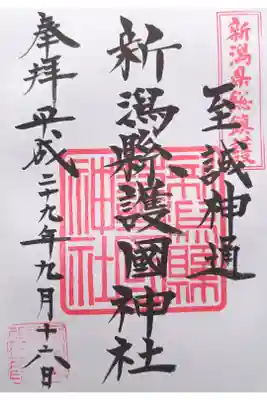 新潟県総鎮護
至誠神通
新潟縣護國神社
奉拝 平成二十九年九月十六日